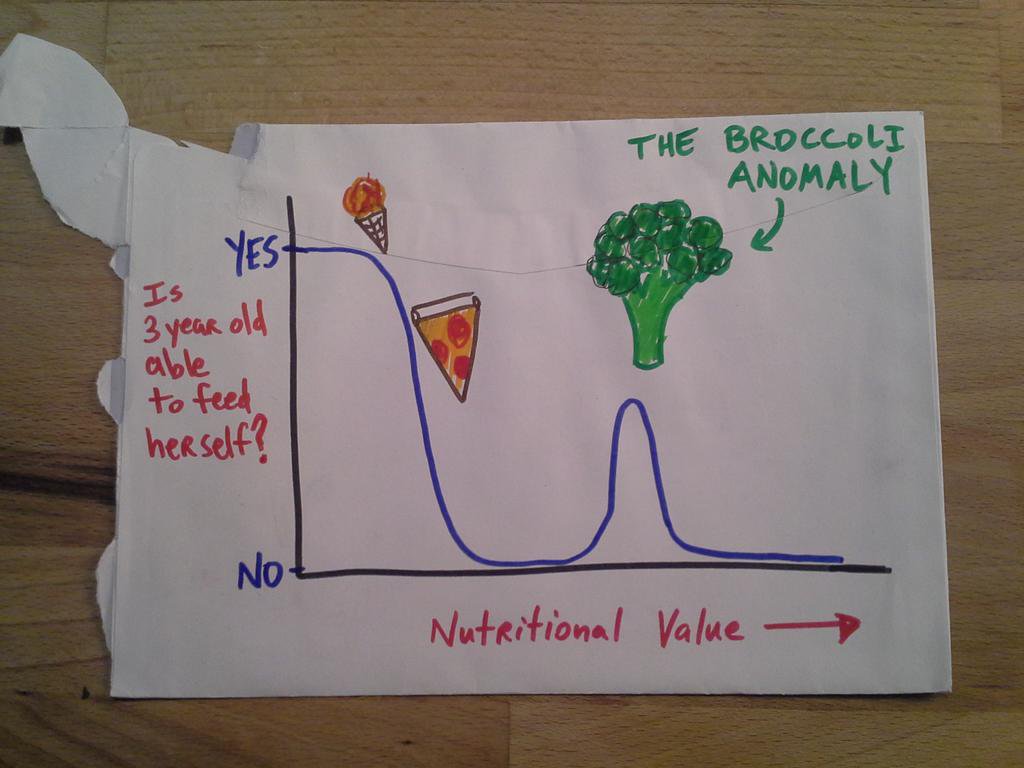 THE BROCCOLI
ANOMALY
YES
Is
3 year old
able
to feed
herself?
NO
Nutritional Value →